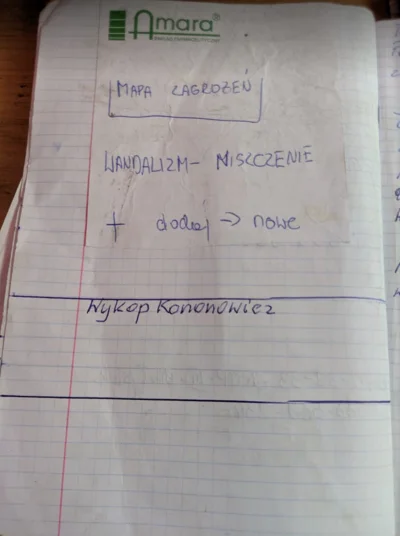 Amara®
MAPA ZAGROŻEŃ
WANDALIZM - NISZCZENIE
+ dodaj → nowe
Wykop Kononowicz